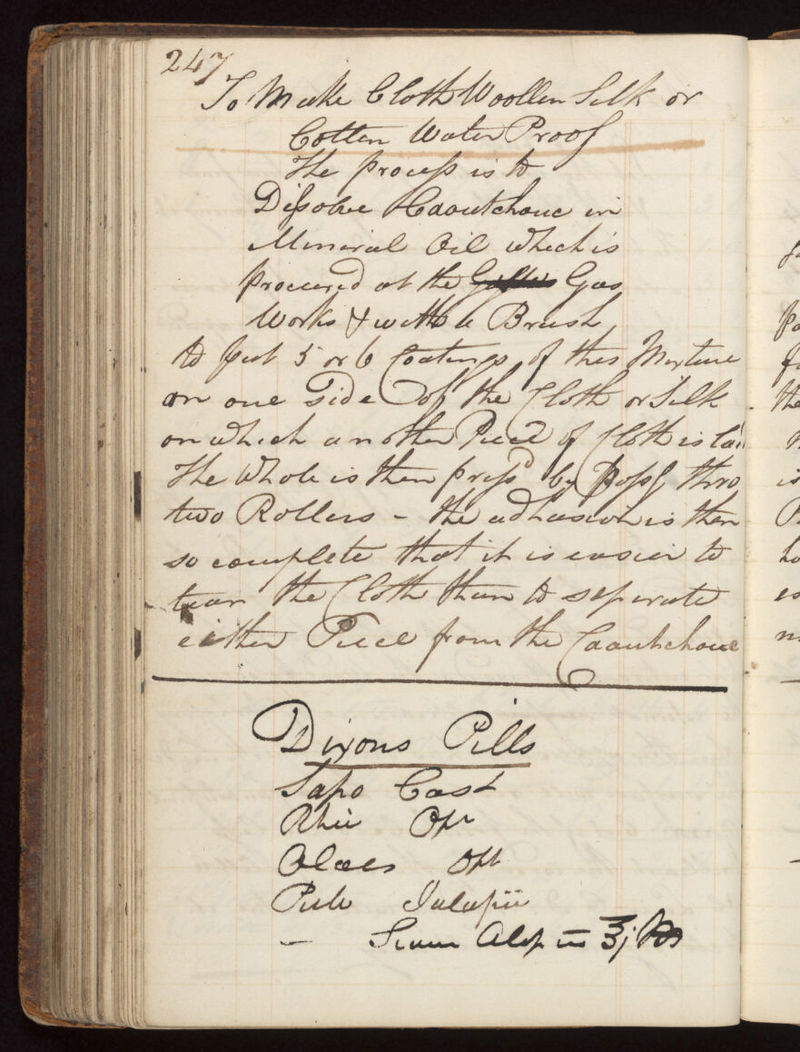 247
To Make Cloth Woollen Silk or
Cotten Water Proof
The process is to
Dissolve Caoutchouc in
Mineral Oil which is
procured at the Gas
Works & with a Brush
to put 5 or 6 Coatings of this Mixture
on one Side of the Cloth or Silk
on which another Piece of Cloth is lai
The Whole is then press'd by Passg thro
two Rollers - the adhasion is then
so complete that it is easier to
tear the Cloth than to separate
either Piece from the Caoutchouc
Dixons Pills
Sapo Cast
Rhei Opt
Aloes Opt
Pulv Jalapii
- Scam Alep ʒj